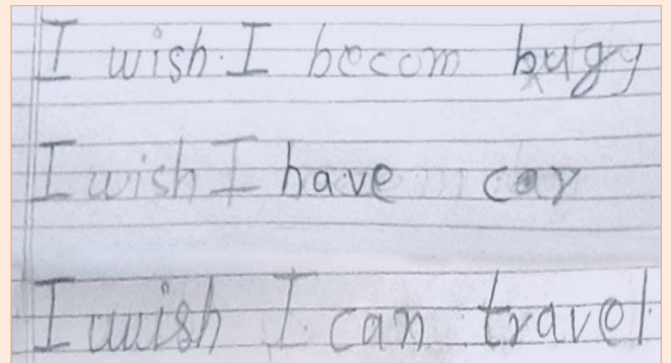 I wish I becom bugy
I wish I have car
I wish I can travel.